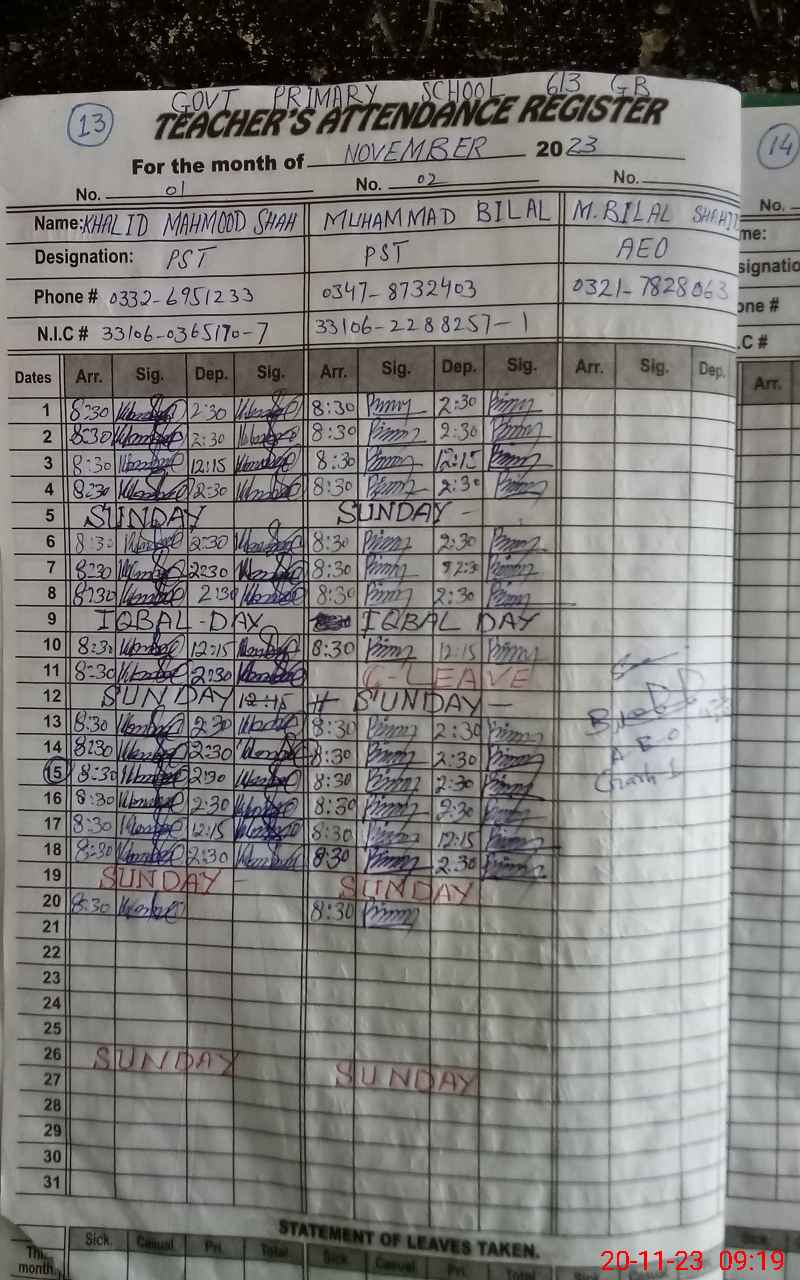 GOVT PRIMARY SCHOOL 613 GB
13 TEACHER'S ATTENDANCE REGISTER 14
For the month of NOVEMBER 2023
No. 01 No. 02 No. No.
Name: KHALID MAHMOOD SHAH MUHAMMAD BILAL M. BILAL me:
Designation: PST PST AEO signatio
Phone # 0332-6951233 0347-8732403 0321-7828063 one #
N.I.C # 33106-0365170-7 33106-2288257-1 .C #
Dates Arr. Sig. Dep. Sig. Arr. Sig. Dep. Sig. Arr. Sig. Dep. Arr.
1 8:30 2:30 8:30 2:30
2 8:30 2:30 8:30 2:30
3 8:30 12:15 8:30 12:15
4 8:30 2:30 8:30 2:30
5 SUNDAY SUNDAY -
6 8:30 2:30 8:30 2:30
7 8:30 2:30 8:30 2:30
8 8:30 2:30 8:30 2:30
9 IQBAL-DAY IQBAL DAY
10 8:30 12:15 8:30 12:15
11 8:30 2:30 C-LEAVE
12 SUNDAY 12:15 SUNDAY -
13 8:30 2:30 8:30 2:30
14 8:30 2:30 8:30 2:30
15 8:30 2:30 8:30 2:30
16 8:30 2:30 8:30 2:30
17 8:30 12:15 8:30 12:15
18 8:30 2:30 8:30 2:30
19 SUNDAY - SUNDAY
20 8:30 8:30
21
22
23
24
25
26 SUNDAY SUNDAY
27
28
29
30
31
A E O
STATEMENT OF LEAVES TAKEN.
This month. Sick. Casual Pri. Total Sick. Casual Pri. Total Sick. Casual
20-11-23 09:19